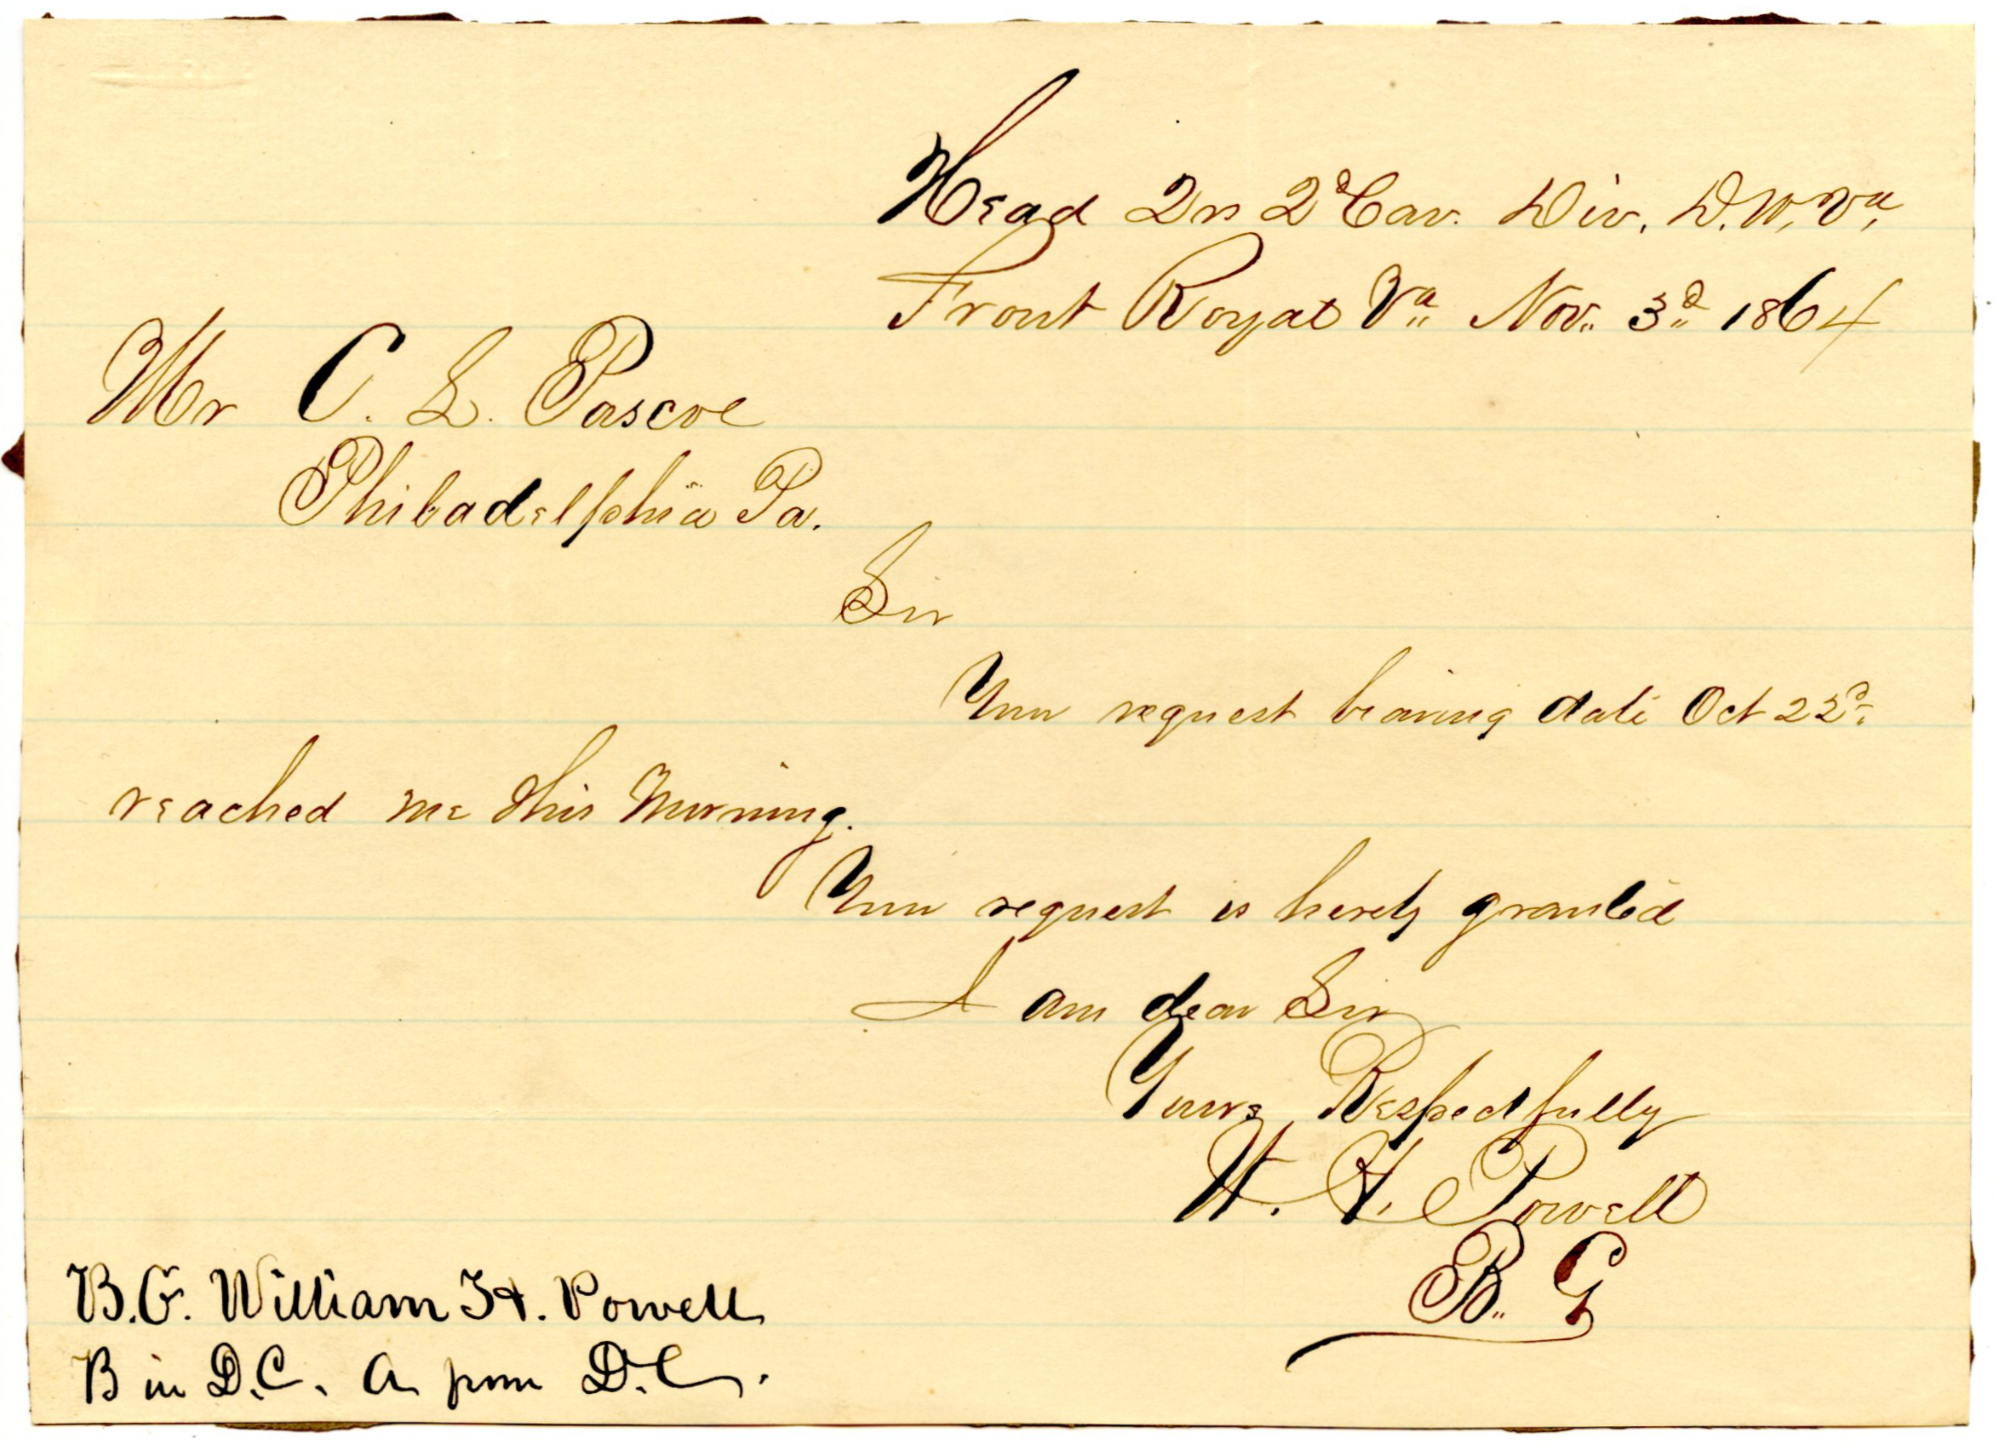 Head Qrs 2d Cav. Div. D. W. Va.
Front Royal Va. Nov. 3d 1864
Mr C. L. Pascoe
Philadelphia Pa.
Sir
Your request bearing date Oct 22d.
reached me this Morning.
Your request is hereby granted
I am dear Sir
Yours Respectfully
W. H. Powell
B. G
B.G. William H. Powell
B in D.C. A from D.C.